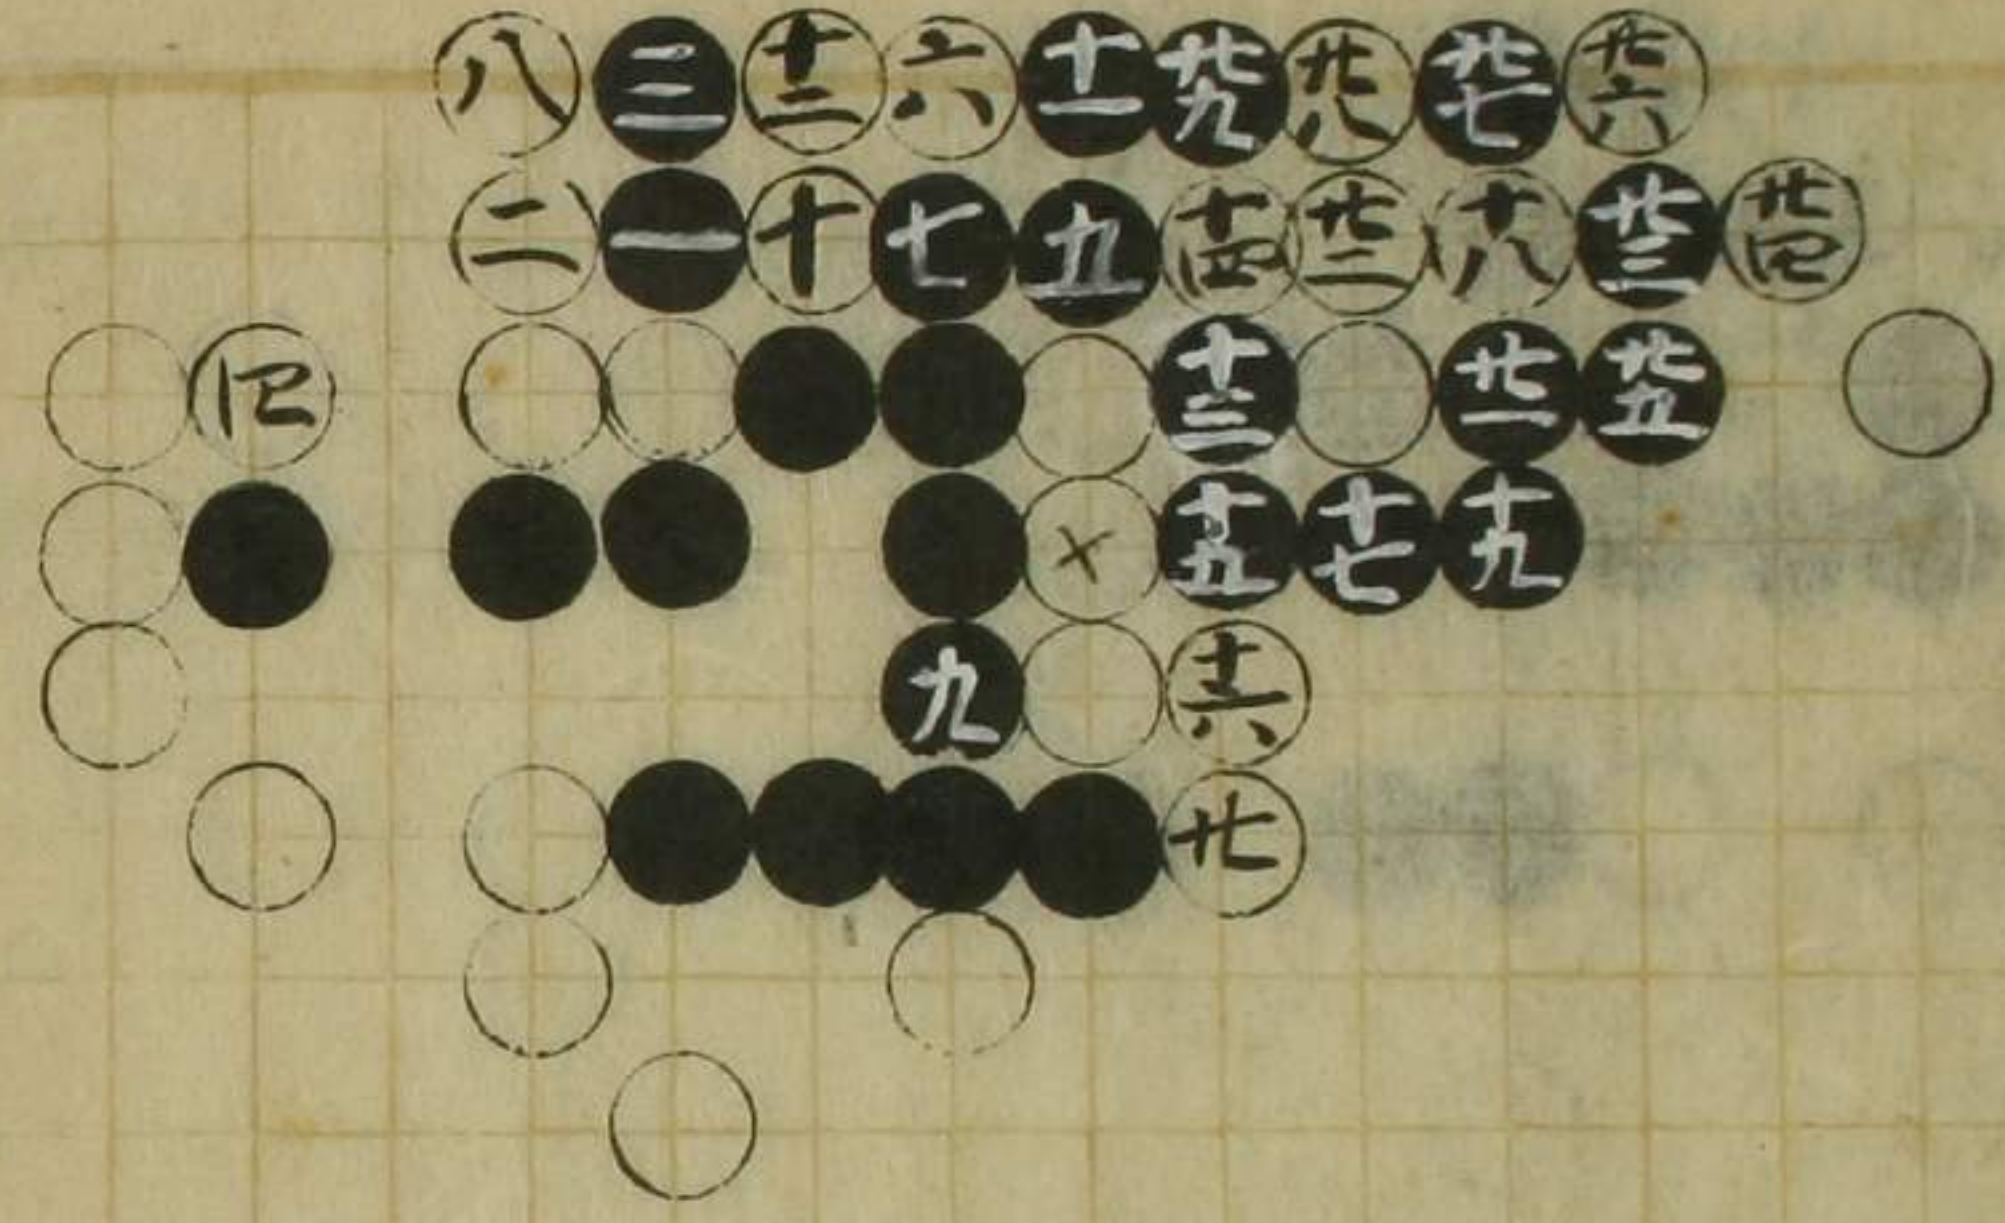 八 三 十二 六 十一 廿九 廿八 廿七 廿六
二 一 十 七 五 十四 廿二 十八 廿三 廿四
四 十三 廿一 廿五
× 十五 十七 十九
九 十六
廿